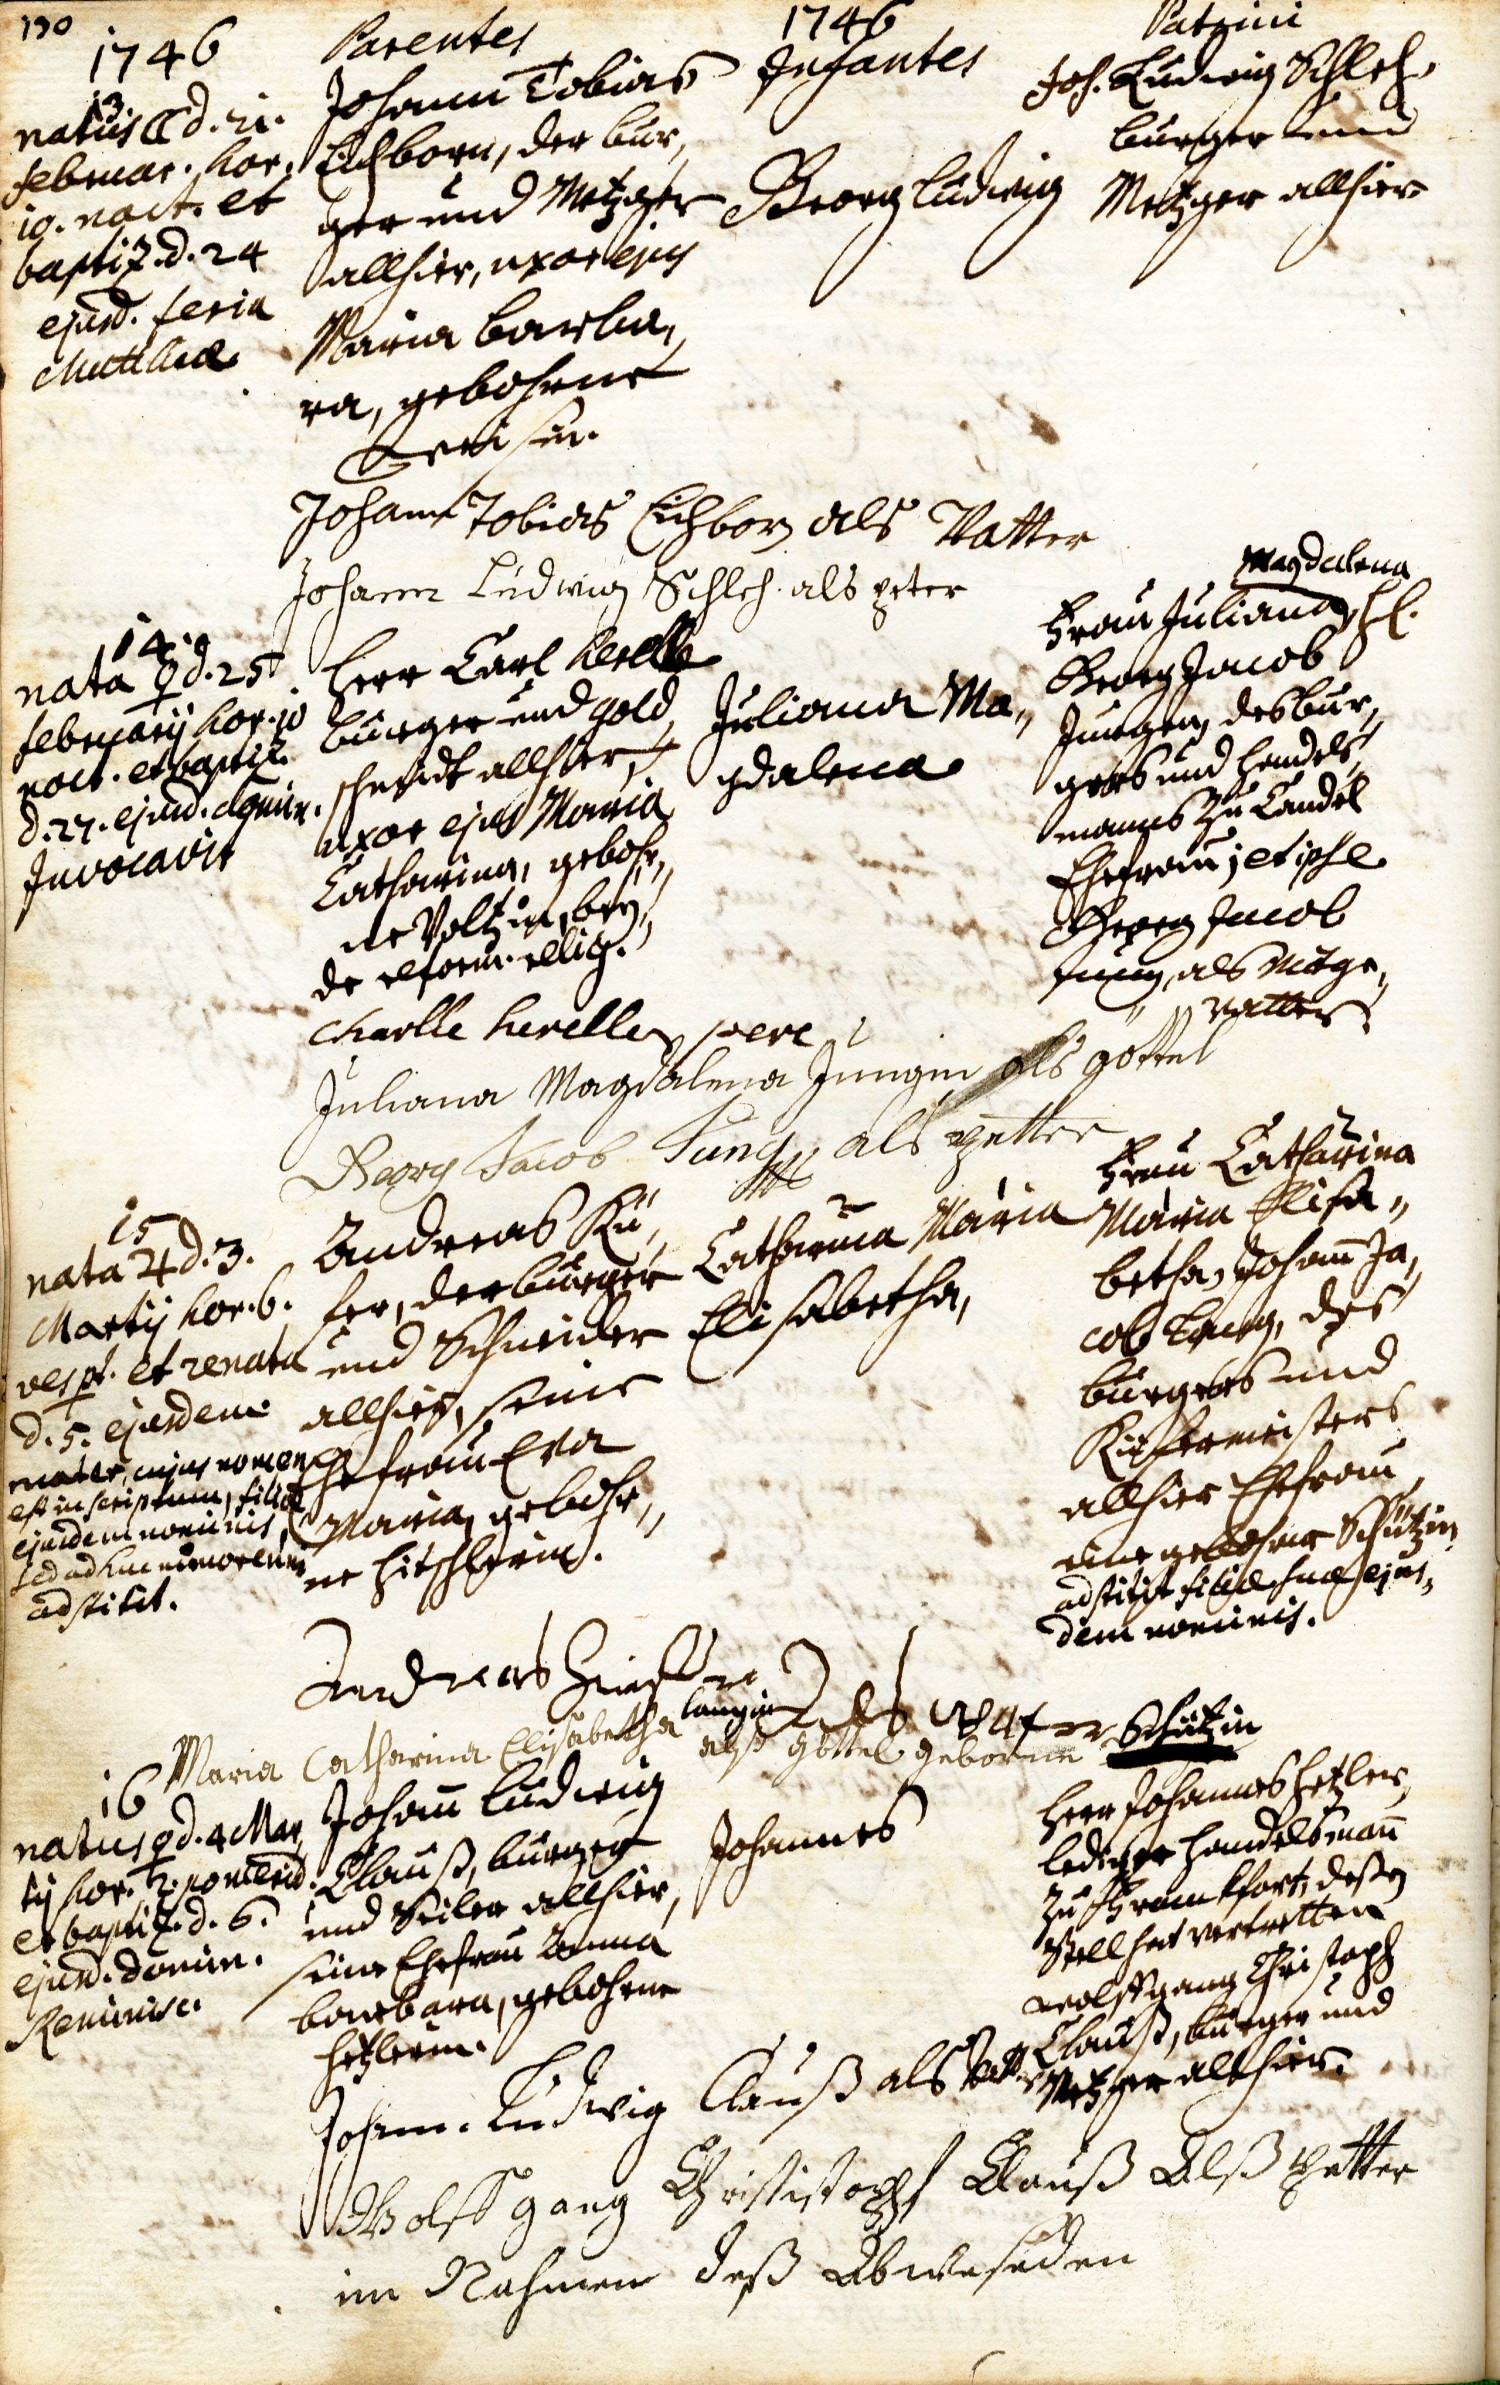 190
1746
Parentes
1746
Infantes
Patrini
13.
natus ☾ d. 21.
februar. hor.
10. noct. et
baptiz. d. 24
ejusd. feria
Matthiae
Johann Tobias
Eichborn, der bur„
ger und Metzger
allhier, uxor ejus
Maria Barba„
ra, gebohrne
Georg Ludwig
Joh. Ludwig Schleh.
burger und
Metzger allhier
Johann Tobias Eichborn als Vatter
Johann Ludwig Schleh als peter
14.
nata ♀ d. 25
februarij hor. 10
noct. et baptiz.
d. 27. ejusd. domin.
Invocavit
Herr Carl herelle
burger und gold„
schmidt allhier,
uxor ejus Maria
Catharina, gebohr„
ne Voltzin, bey„
de reform. relig.
Juliana Ma„
gdalena
Magdalena
Frau Juliana, H.
Georg Jacob
Jungen, des bur„
gers und handels„
manns zu Candel
Ehefrau; et ipse
Georg Jacob
Jung, als mitge„
vatter
Charlle herelle pere
Juliana Magdalena Jungin als göttel
Georg Jacob Jung als petter
15
nata ♃ d. 3.
Martij hor. 6.
vesp. et renata
d. 5. ejusdem
mater, cujus nomen
est inscriptum, filiae
ejusdem nominis,
adstitit.
Andreas Kü„
fer, der burger
und Schneider
allhier, seine
Ehefrau Eva
Maria, gebohr„
ne Hitschlerin.
Catharina Maria
Elisabetha,
Frau Catharina
Maria Elisa„
betha, Johann Ja„
cob Lang, des
burgers und
Küfermeisters
allhier Ehefrau
eine gebohrne Schützin
adstitit filiae suae ejus„
dem nominis.
Andreas Küffer Als Vatter
Maria Catharina Elisabetha langin als göttel geborne Schützin
16
natus ♀ d. 4 Mar„
tij hor. 2. pomerid.
et baptiz. d. 6.
ejusd. domin.
Reminisc.
Johann Ludwig
Clauß, burger
und Seiler allhier,
seine Ehefrau Anna
barbara, gebohrne
Hetzlerin.
Johannes
Herr Johannes Hetzler,
lediger handelsmann
zu Frankfort, deßen
Stell hat vertretten
Wolffgang Christoph
Clauß, burger und
Metzger allhier.
Johann Ludwig Clauß als Vatter
Wolffgang Christistopff Clauß Alß petter
im Nahmen deß Abweseden